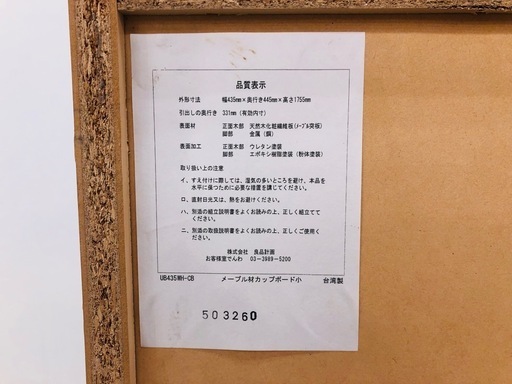 品質表示
外形寸法 幅435mm×奥行き445mm×高さ1755mm
引出しの奥行き 331mm(有効内寸)
表面材 正面木部 天然木化粧繊維板(メープル突板)
脚部 金属(鋼)
表面加工 正面木部 ウレタン塗装
脚部 エポキシ樹脂塗装(粉体塗装)
取り扱い上の注意
イ、すえ付けに際しては、湿気の多いところを避け、本品を
水平に保つために必要な措置を講じてください。
ロ、直射日光又は、熱をお避けください。
ハ、別添の組立説明書をよくお読みの上、正しく組立てて
ください。
ニ、別添の取扱説明書をよくお読みの上、正しくご使用く
ださい。
株式会社 良品計画
お客様室でんわ 03-3989-5200
UB435MH-CB メープル材カップボード小 台湾製
503260